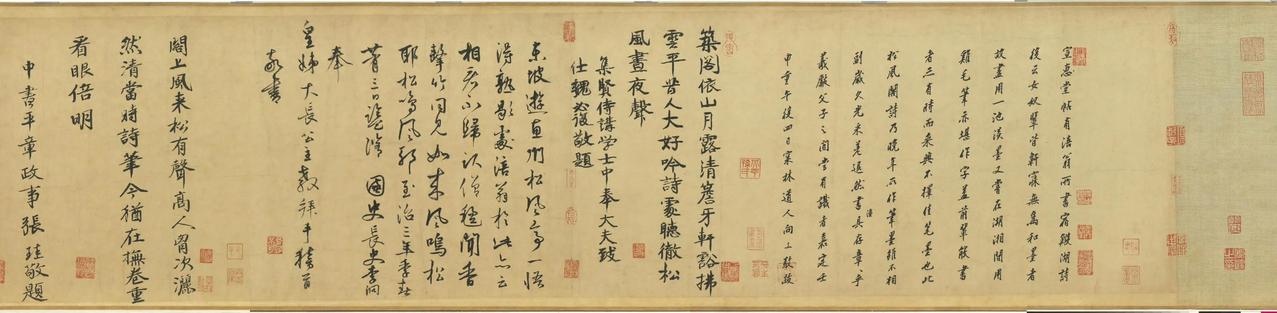 宣惠堂帖有涪翁所書宿鎖湖詩
後云女奴輩皆鼾寐無為和墨者
故盡用一池漢墨又嘗在湖湘間用
雞毛筆亦堪作字蓋前輩書
者三有時而乘興不擇佳筆墨也此
松風閣詩乃晚年所作筆墨雖不相
副歲久光采差退然書具存章乎
義嚴父子之間當有識者嘉定壬
申重午後四日寒林道人向敬跋
築閣依山月露清簷牙軒豁拂
雲平昔人大好吟詩處聽徹松
風晝夜聲
集賢侍講學士中奉大夫致
仕魏必復敬題
東坡遊惠州松風亭一悟
得熟歇處涪翁於此亦云
相君不歸以僧氊聞香
聲竹同見如來風鳴松
耶松鳴風耶至治三年季春
三日監脩國史長史李泂
奉
皇姊大長公主教拜手稽首
敬書
閣上風來松有聲高人留次灑
然清當時詩筆今猶在撫卷重
看眼倍明
中書平章政事張珪敬題